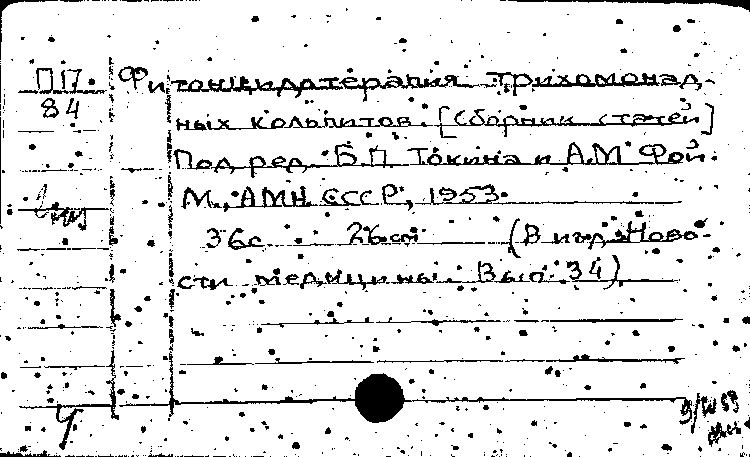 П17. Фитонцидотерапия трихомонад-
84
ных кольпитов. [Сборник статей]
Под ред. Б.П. Токина и А.М. Фой.
М., АМН СССР, 1953.
36с. 26см (В изд. Ново-
сти медицины. Вып. 34).